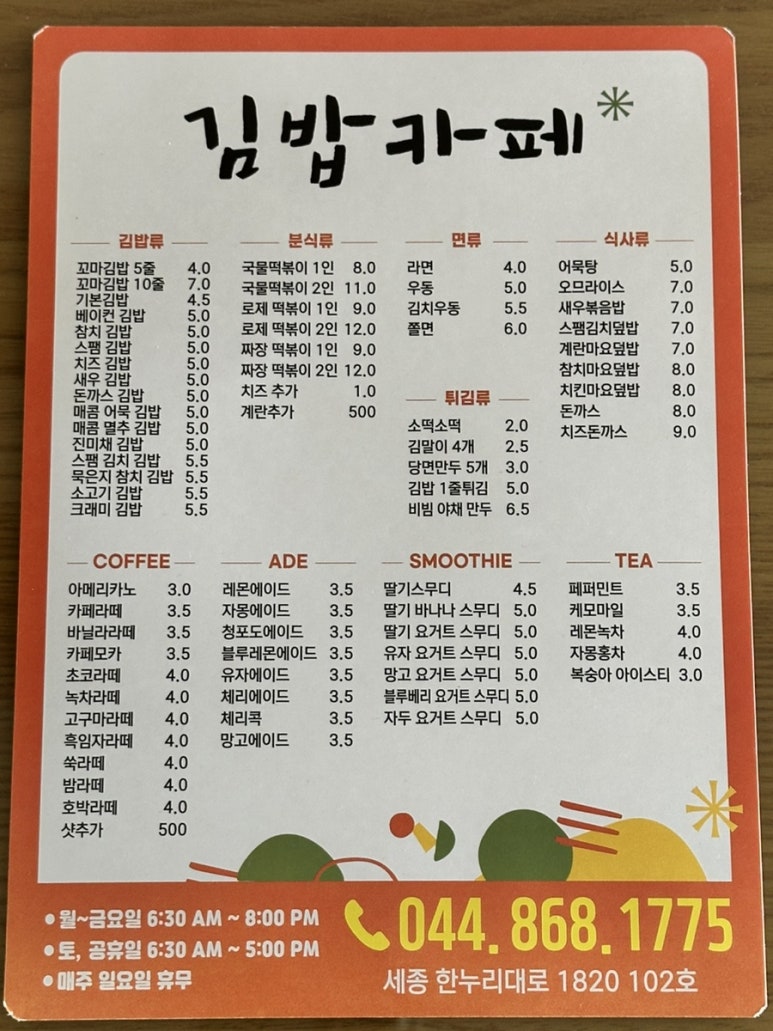 김밥카페
김밥류
꼬마김밥 5줄 4.0
꼬마김밥 10줄 7.0
기본김밥 4.5
베이컨 김밥 5.0
참치 김밥 5.0
스팸 김밥 5.0
치즈 김밥 5.0
새우 김밥 5.0
돈까스 김밥 5.0
매콤 어묵 김밥 5.0
매콤 멸추 김밥 5.0
진미채 김밥 5.0
스팸 김치 김밥 5.5
묵은지 참치 김밥 5.5
소고기 김밥 5.5
크래미 김밥 5.5
분식류
국물떡볶이 1인 8.0
국물떡볶이 2인 11.0
로제 떡볶이 1인 9.0
로제 떡볶이 2인 12.0
짜장 떡볶이 1인 9.0
짜장 떡볶이 2인 12.0
치즈 추가 1.0
계란추가 500
면류
라면 4.0
우동 5.0
김치우동 5.5
쫄면 6.0
튀김류
소떡소떡 2.0
김말이 4개 2.5
당면만두 5개 3.0
김밥 1줄튀김 5.0
비빔 야채 만두 6.5
식사류
어묵탕 5.0
오므라이스 7.0
새우볶음밥 7.0
스팸김치덮밥 7.0
계란마요덮밥 7.0
참치마요덮밥 8.0
치킨마요덮밥 8.0
돈까스 8.0
치즈돈까스 9.0
COFFEE
아메리카노 3.0
카페라떼 3.5
바닐라라떼 3.5
카페모카 3.5
초코라떼 4.0
녹차라떼 4.0
고구마라떼 4.0
흑임자라떼 4.0
쑥라떼 4.0
밤라떼 4.0
호박라떼 4.0
샷추가 500
ADE
레몬에이드 3.5
자몽에이드 3.5
청포도에이드 3.5
블루레몬에이드 3.5
유자에이드 3.5
체리에이드 3.5
체리콕 3.5
망고에이드 3.5
SMOOTHIE
딸기스무디 4.5
딸기 바나나 스무디 5.0
딸기 요거트 스무디 5.0
유자 요거트 스무디 5.0
망고 요거트 스무디 5.0
블루베리 요거트 스무디 5.0
자두 요거트 스무디 5.0
TEA
페퍼민트 3.5
케모마일 3.5
레몬녹차 4.0
자몽홍차 4.0
복숭아 아이스티 3.0
•월~금요일 6:30 AM ~ 8:00 PM
•토, 공휴일 6:30 AM ~ 5:00 PM
•매주 일요일 휴무
044.868.1775
세종 한누리대로 1820 102호